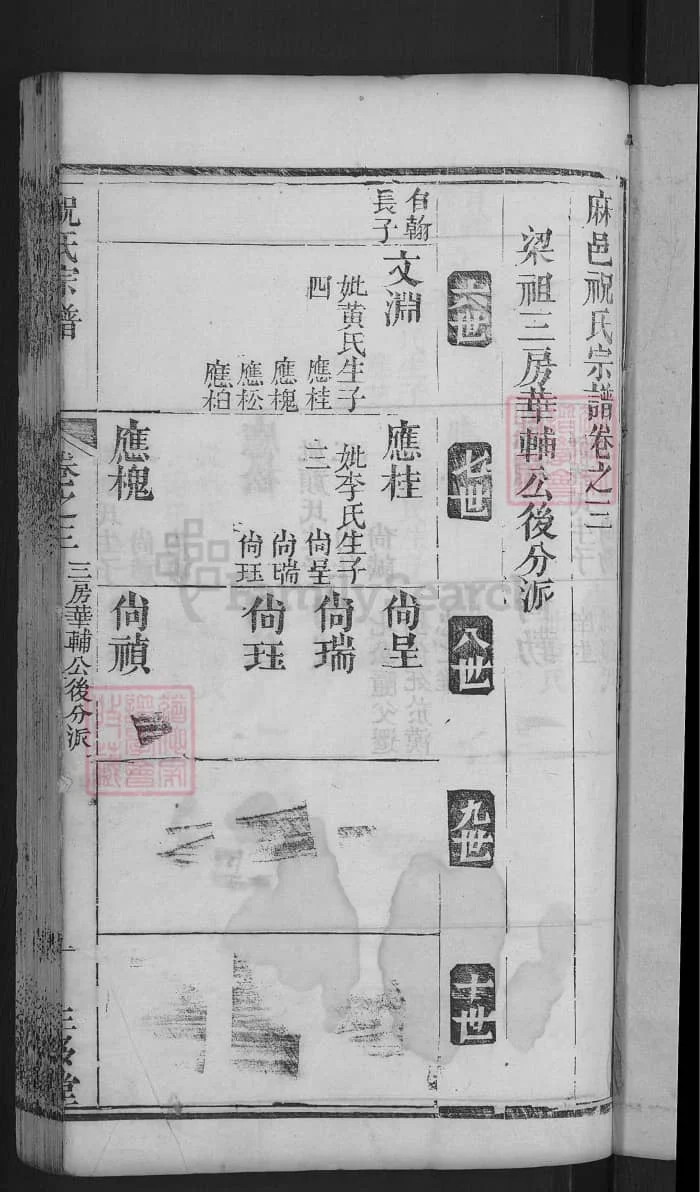 麻邑祝氏宗譜卷之三
梁祖三房華輔公後分派
六世
七世
八世
九世
十世
自翰
長子
文淵
妣黃氏生子
四
應桂
應槐
應松
應柏
應桂
妣李氏生子
三
尙呈
尙瑞
尙珏
應槐
尙呈
尙瑞
尙珏
尙禎
祝氏宗譜
卷之三
三房華輔公後分派
一
FamilySearch